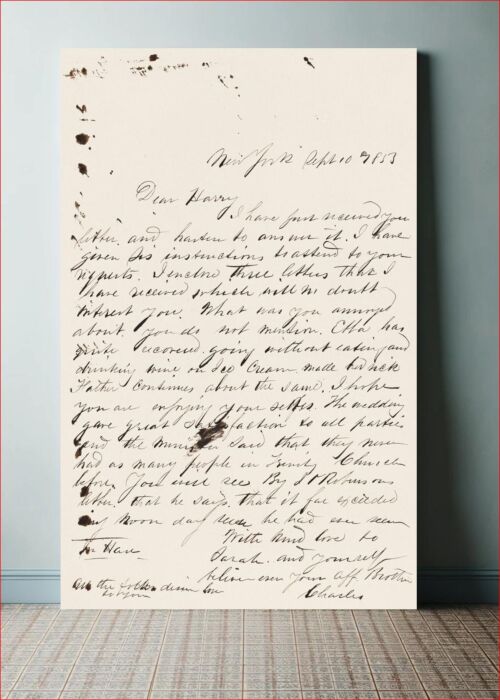 New York Sept 10th 1853
Dear Harry
I have just received your
letter and hasten to answer it. I have
given instructions to attend to your
requests. I enclose three letters that I
have received which will no doubt
interest you. What was you annoyed
about, you do not mention. Etta has
quite recovered, going without eating and
drinking wine, or Ice Cream made her sick
Father continues about the same, I hope
you are enjoying your selves. The wedding
gave great satisfaction to all parties
and the Minister said that they never
had as many people in Trinity Church
before. You will see By Robinsons
letter that he says that it far exceeded
any Noon day he had ever seen
With kind love to
Sarah and yourself
In Haste
believe ever your aff. Brother
Charles
All the folks desire love